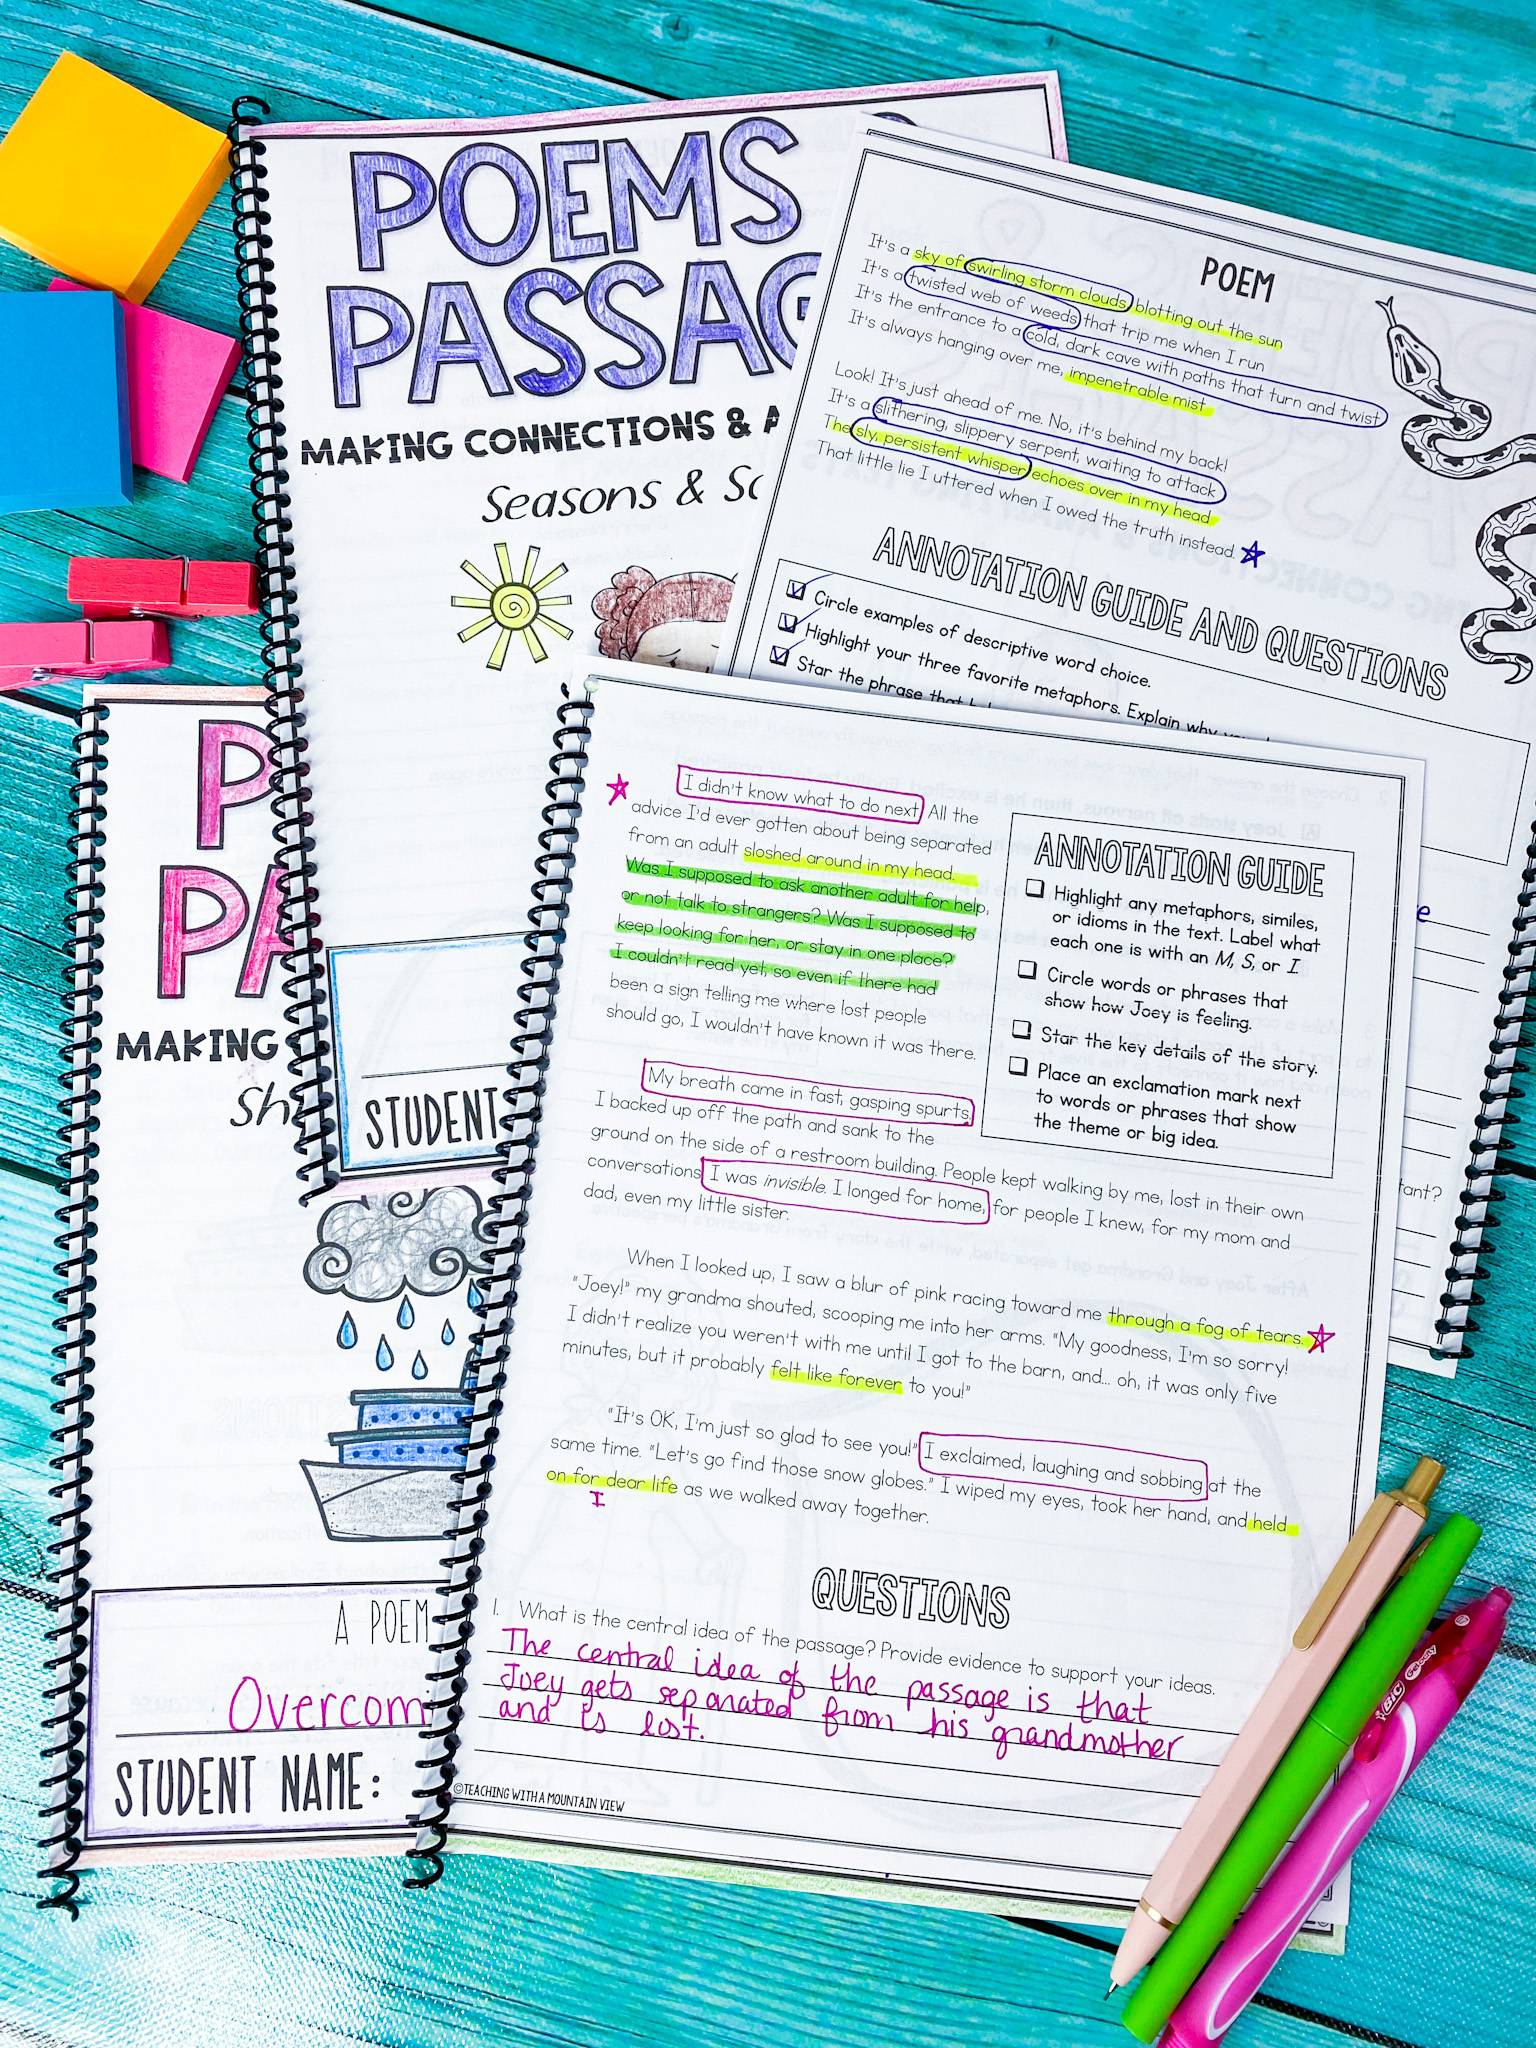 POEMS
PASSAG
MAKING CONNECTIONS & A
Seasons & Sc
STUDENT
P
PA
MAKING
Sh
A POEM
Overcom
STUDENT NAME:
POEM
It's a sky of swirling storm clouds, blotting out the sun
It's a twisted web of weeds that trip me when I run
It's the entrance to a cold, dark cave with paths that turn and twist
It's always hanging over me, impenetrable mist
Look! It's just ahead of me. No, it's behind my back!
It's a slithering, slippery serpent, waiting to attack
The sly, persistent whisper echoes over in my head
That little lie I uttered when I owed the truth instead.
ANNOTATION GUIDE AND QUESTIONS
Circle examples of descriptive word choice.
Highlight your three favorite metaphors. Explain why you
Star the phrase that
e
tant?
I didn't know what to do next. All the
advice I'd ever gotten about being separated
from an adult sloshed around in my head.
Was I supposed to ask another adult for help,
or not talk to strangers? Was I supposed to
keep looking for her, or stay in one place?
I couldn't read yet, so even if there had
been a sign telling me where lost people
should go, I wouldn't have known it was there.
My breath came in fast, gasping spurts.
I backed up off the path and sank to the
ground on the side of a restroom building. People kept walking by me, lost in their own
conversations. I was invisible. I longed for home, for people I knew, for my mom and
dad, even my little sister.
When I looked up, I saw a blur of pink racing toward me through a fog of tears.
"Joey!" my grandma shouted, scooping me into her arms. "My goodness, I'm so sorry!
I didn't realize you weren't with me until I got to the barn, and... oh, it was only five
minutes, but it probably felt like forever to you!"
"It's OK, I'm just so glad to see you!" I exclaimed, laughing and sobbing at the
same time. "Let's go find those snow globes." I wiped my eyes, took her hand, and held
on for dear life as we walked away together.
I
ANNOTATION GUIDE
Highlight any metaphors, similes,
or idioms in the text. Label what
each one is with an M, S, or I.
Circle words or phrases that
show how Joey is feeling.
Star the key details of the story.
Place an exclamation mark next
to words or phrases that show
the theme or big idea.
QUESTIONS
1. What is the central idea of the passage? Provide evidence to support your ideas.
The central idea of the passage is that
Joey gets separated from his grandmother
and is lost.
©TEACHING WITH A MOUNTAIN VIEW
BIC
Gelocity